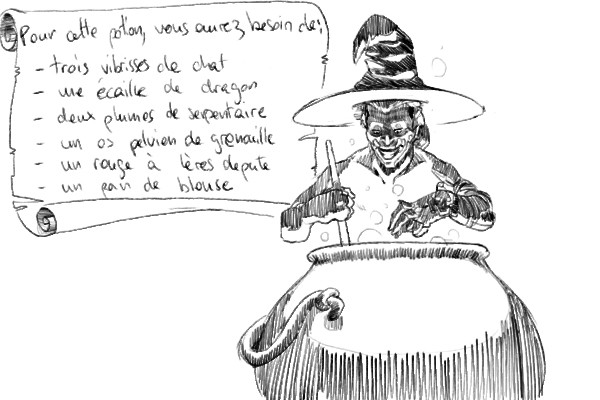 Pour cette potion, vous aurez besoin de:
- trois vibrisses de chat
- une écaille de dragon
- deux plumes de serpentaire
- un os pelvien de grenouille
- un rouge à lères de pute
- un pan de blouse